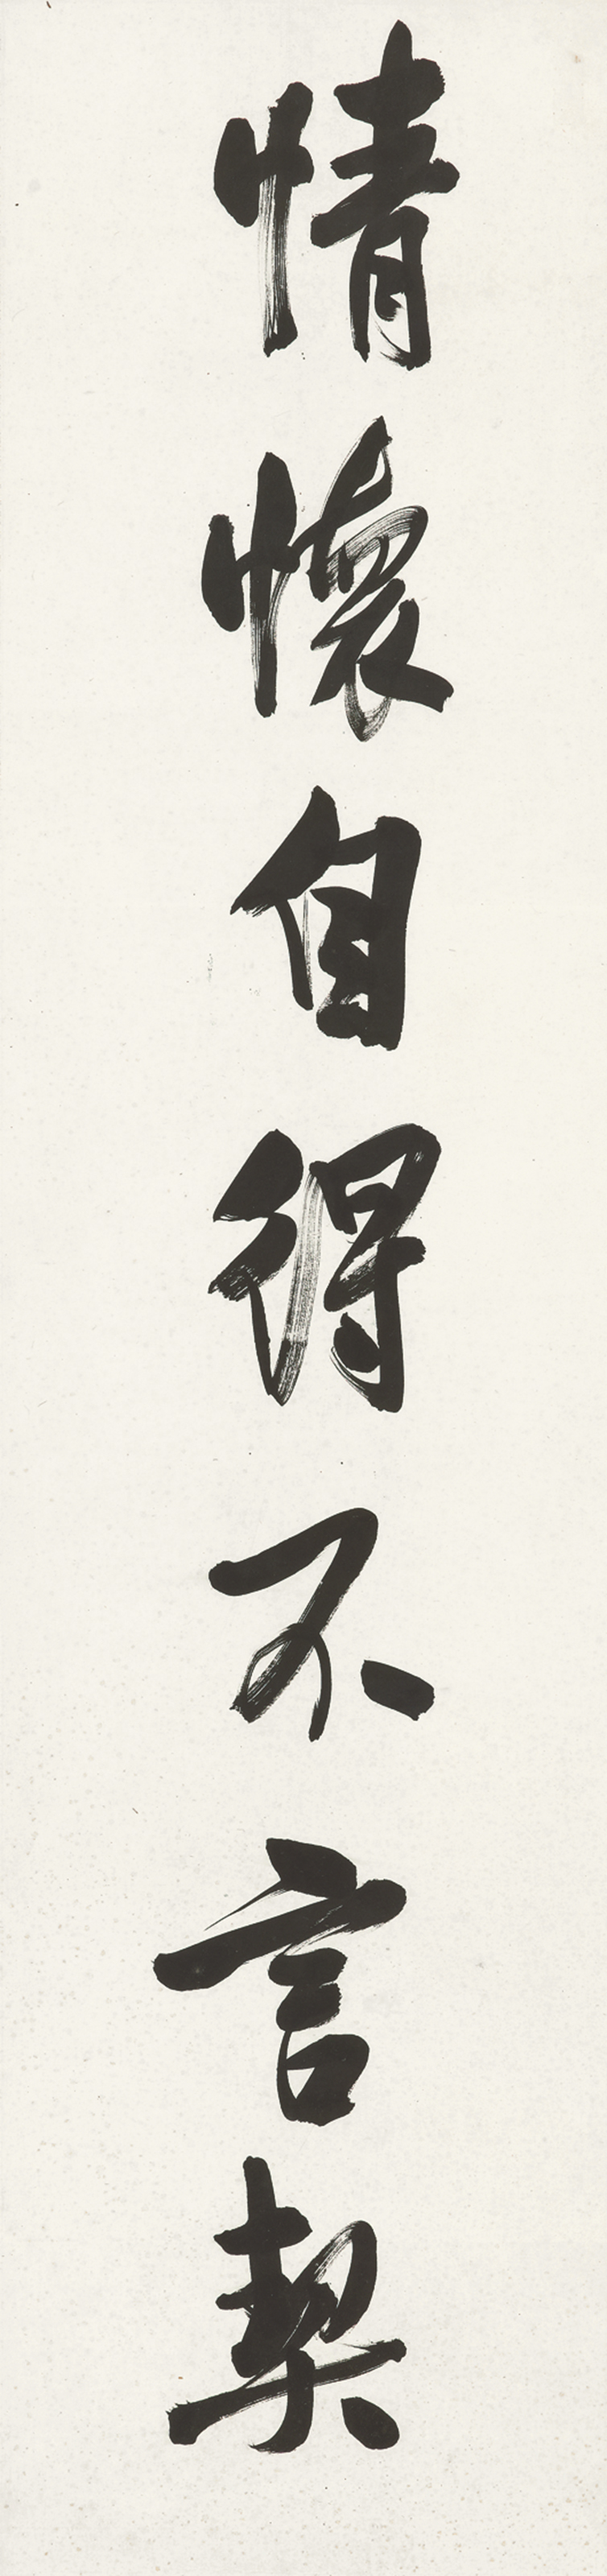 情懷自得不言契